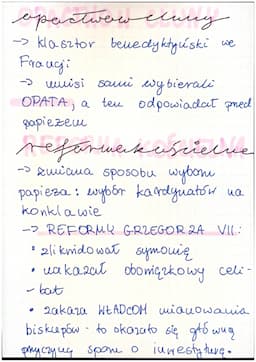 opactwo w Cluny
→ klasztor benedyktyński we
Francji
→ mnisi sami wybierali
OPATA, a ten odpowiadał przed
papieżem
reforma kościelna
→ zmiana sposobu wyboru
papieża: wybór kardynałów na
konklawie
→ REFORMY GRZEGORZA VII:
• zlikwidował symonię
• nakazał obowiązkowy celi-
-bat
• zakaza WŁADCOM mianowania
biskupów - to okazało się główną
przyczyną sporu o inwestyturę.